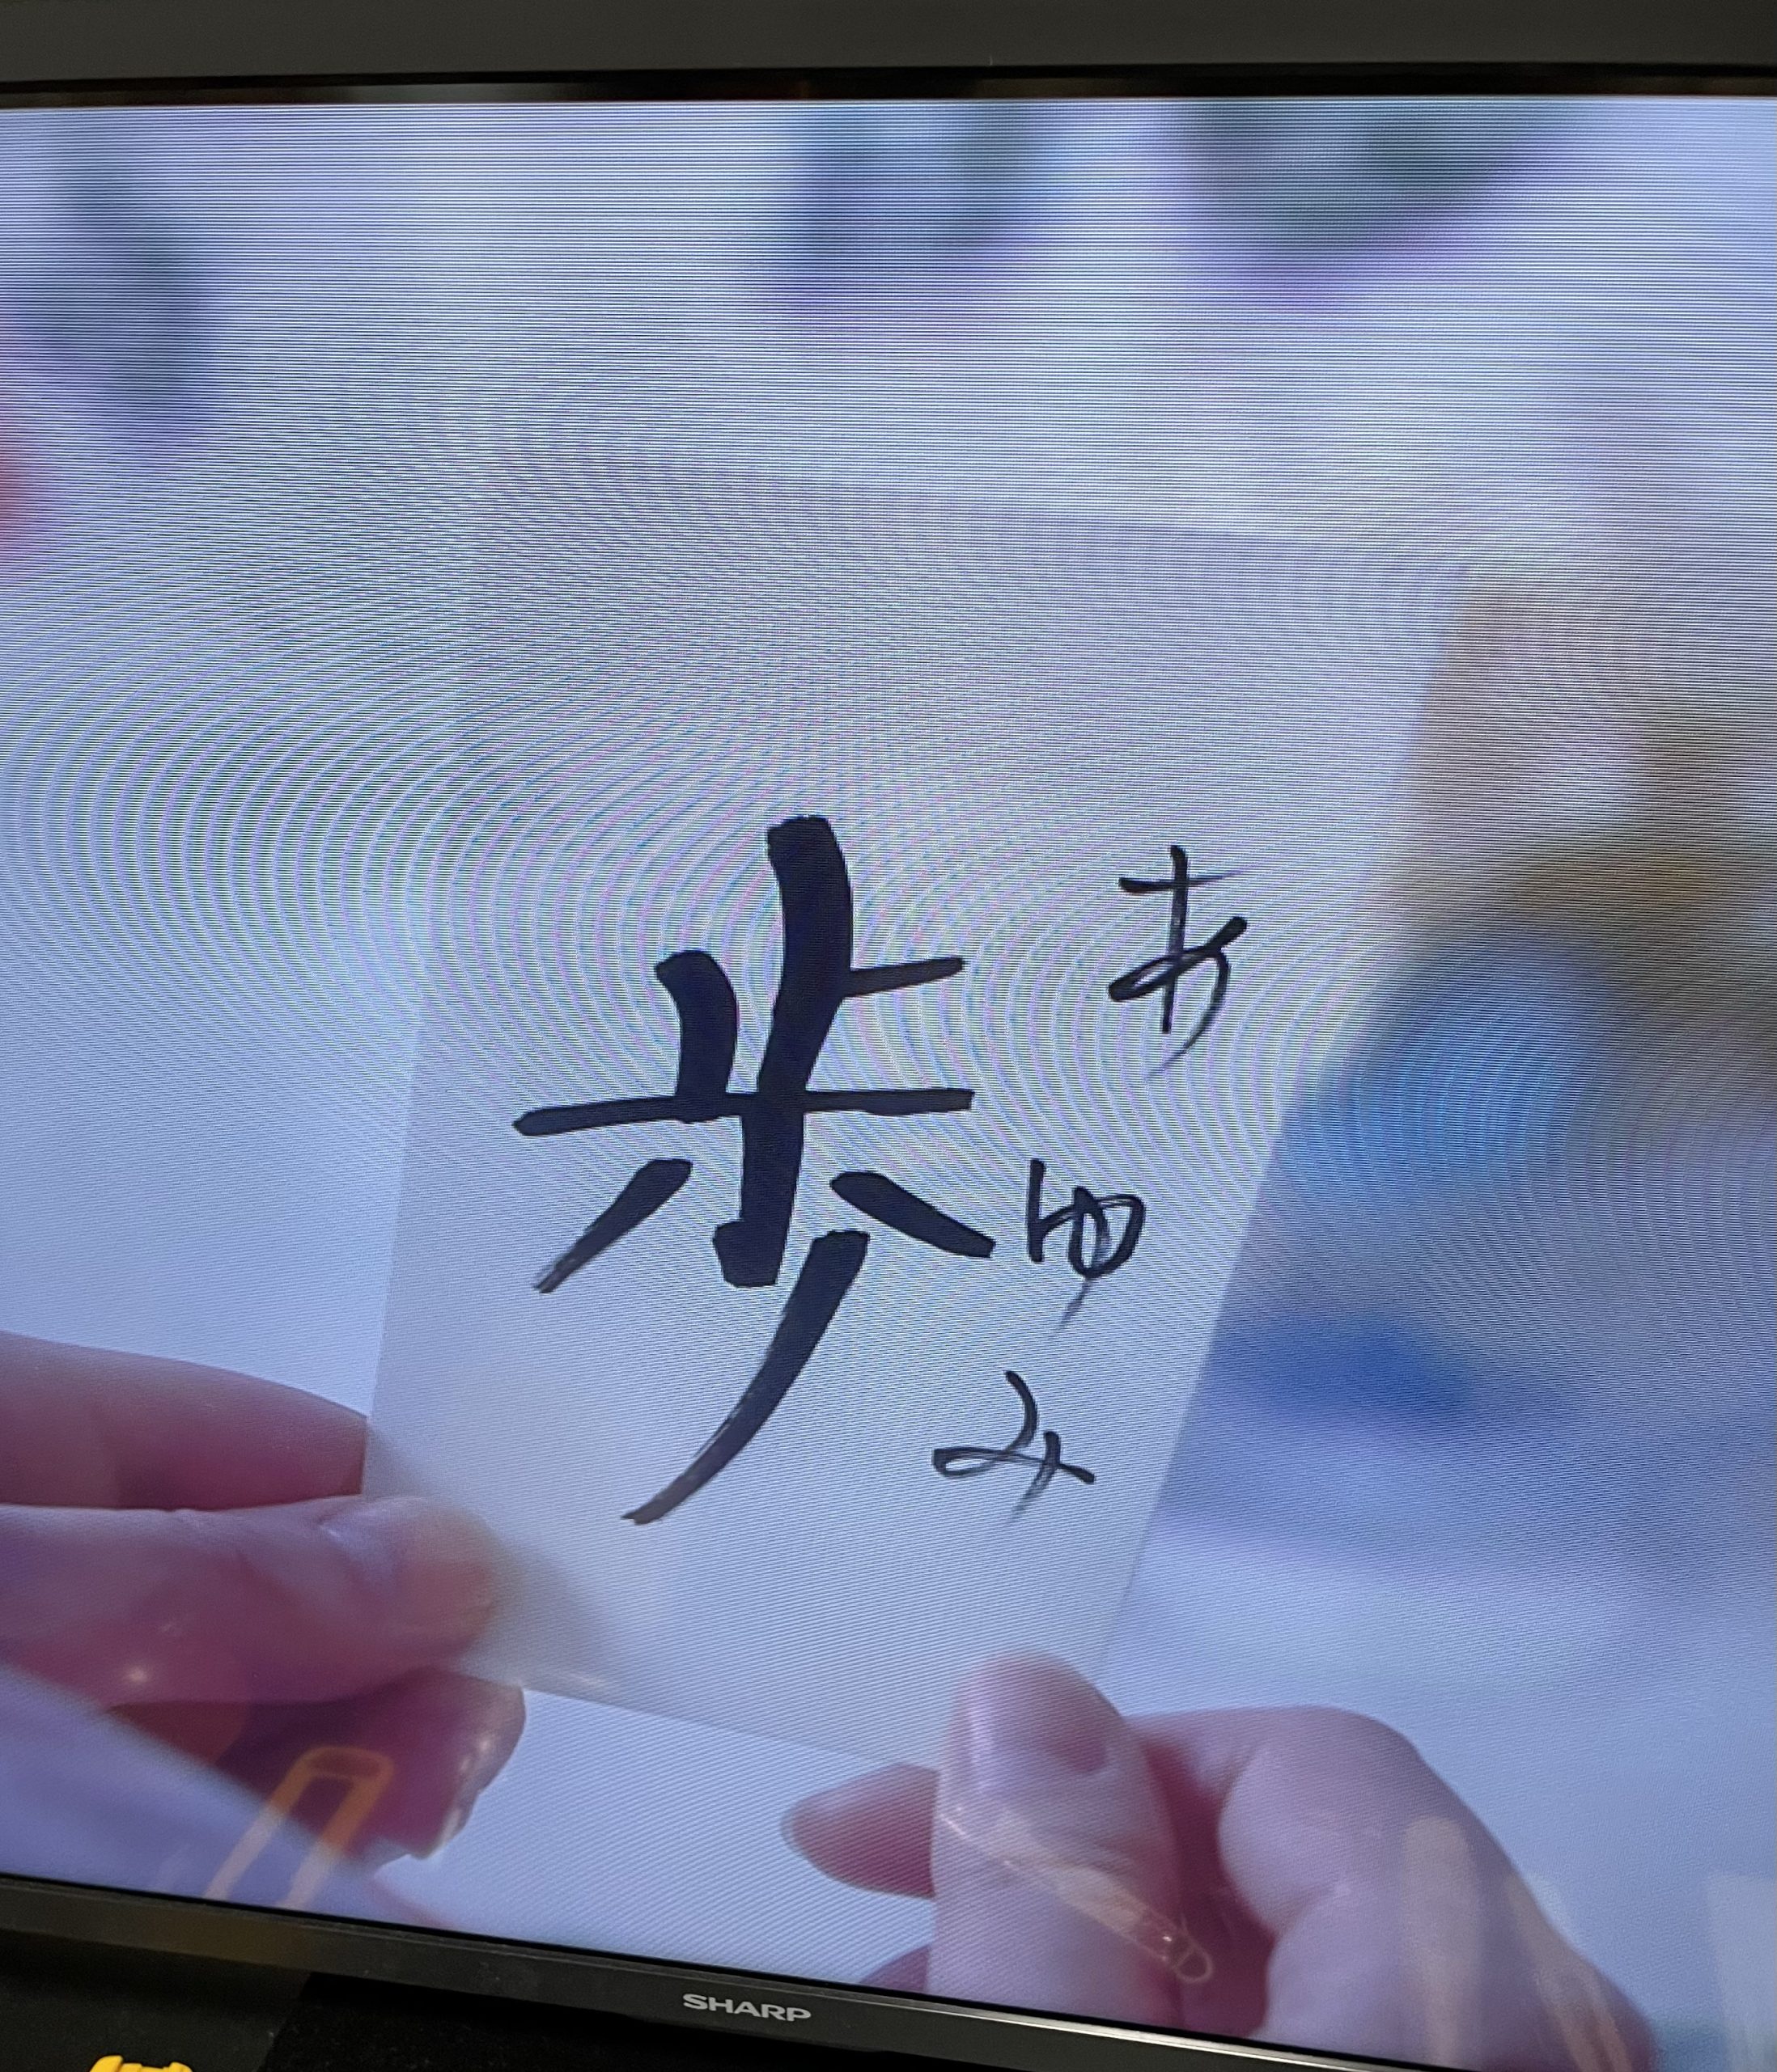 歩
あゆみ
SHARP